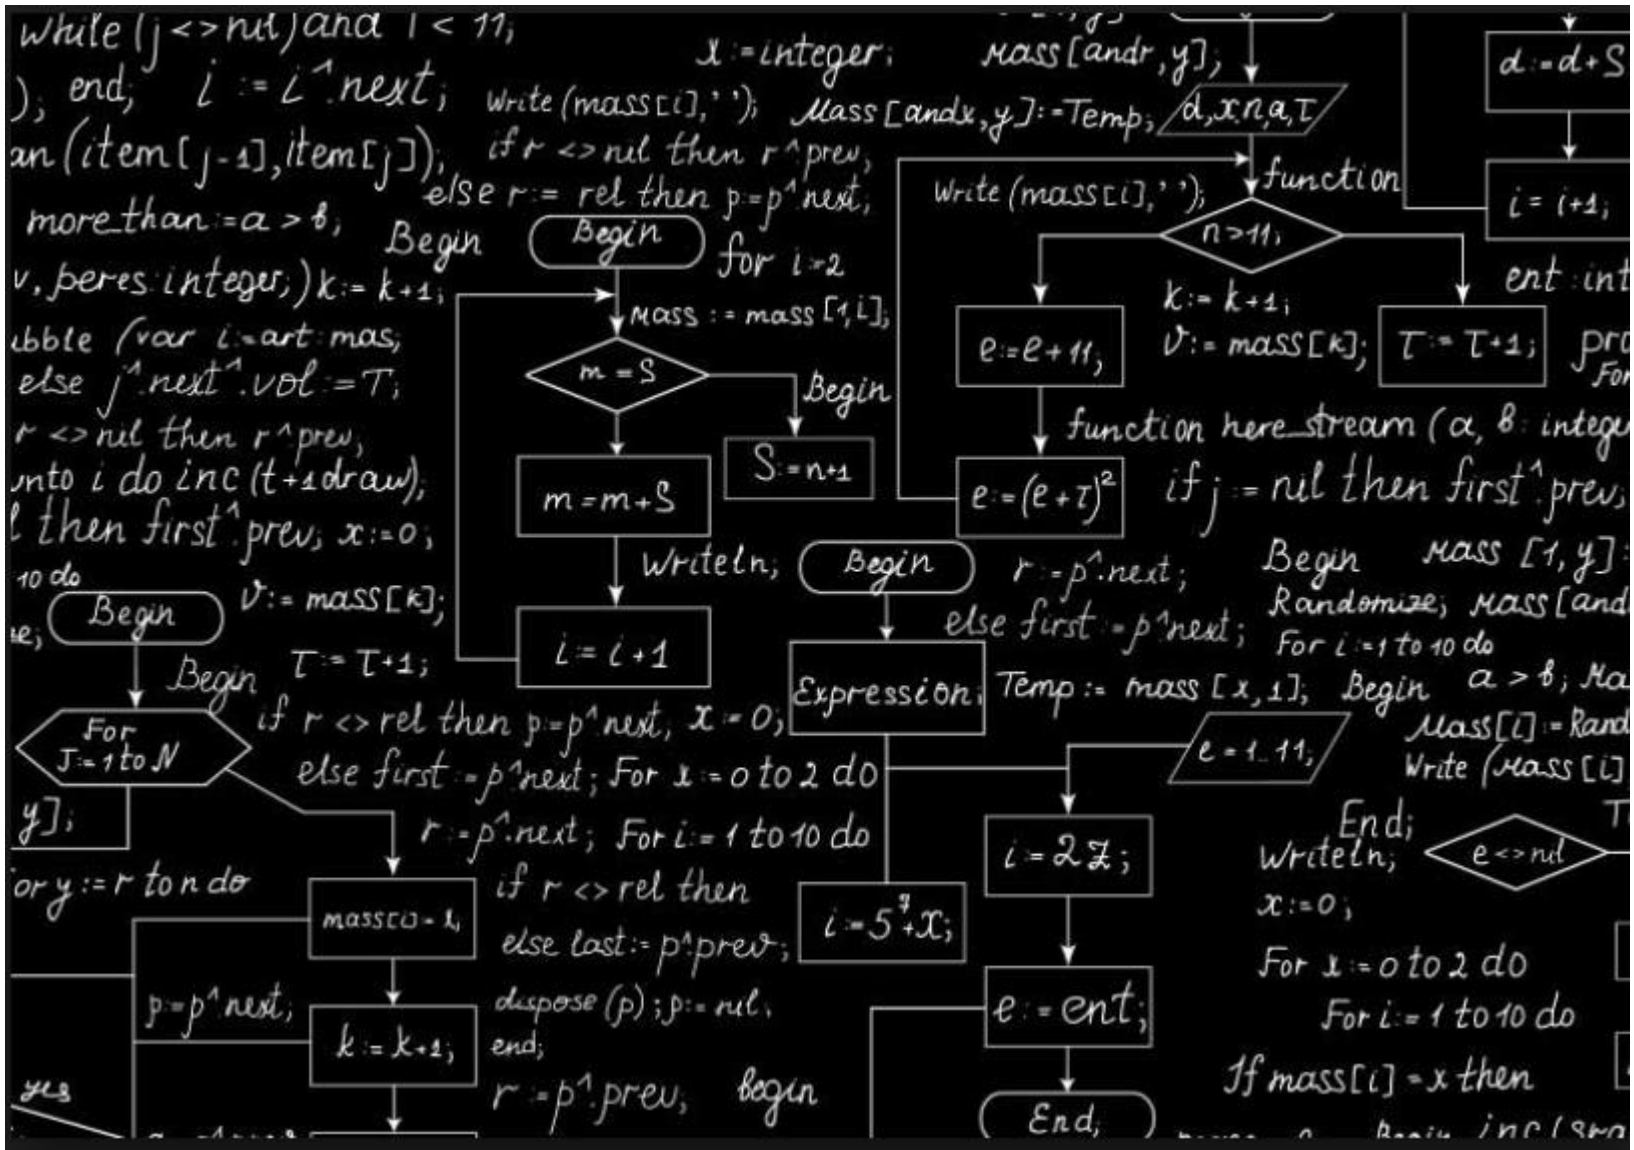 while (j <> nil) and i < 11;
), end; i := i^.next;
an (item[j-1], item[j]);
more_than := a > b;
v, peres: integer;) k := k+1;
(var i := art: mas;
else j^.next^.vol := T;
r <> nil then r^.prev;
unto i do inc (t+1draw);
l then first^.prev; x := 0;
10 do
Begin
v := mass[k];
T := T+1;
Begin
For
J := 1 to N
y];
or y := r to n do
p := p^.next;
k := k+1;
yes
x := integer;
Write (mass[i],' ');
if r <> nil then r^.prev;
else r := rel then p = p^.next;
Begin
Begin
for i := 2
Mass := mass [1, i];
m = S
Begin
S := n+1
m = m+S
Writeln;
i = i+1
if r <> rel then p = p^.next; x := 0;
else first := p^.next; For x := 0 to 2 do
r := p^.next; For i := 1 to 10 do
if r <> rel then
else last := p^.prev;
dispose (p); p := nil;
end;
r := p^.prev; begin
Mass [andr, y];
Mass [andx, y] := Temp;
d, x, n, a, T
function
Write (mass[i],' ');
n > 11;
k := k+1;
v := mass[k];
e := e+11;
T := T+1;
function here_stream (a, b: integ
e := (e+T)²
if j := nil then first^.prev;
d := d+S
i = i+1;
ent: int
pro
For
Begin
r := p^.next;
else first := p^.next;
Expression;
Temp := mass [x, 1];
Begin Mass [1, y]:
Randomize; Mass[and
For i := 1 to 10 do
Begin a > b; Ma
Mass[i] := Rand
Write (Mass[i]
e = 1..11;
i := 2Z;
i := 5⁷+X;
e := ent;
End;
End;
Writeln;
x := 0;
e <> nil
For x := 0 to 2 do
For i := 1 to 10 do
If mass[i] = x then